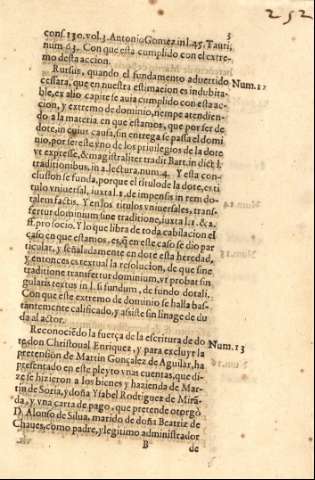 252
3
cons. 130. vol. 3. Antonio Gomez in l. 45. Tauri,
num. 63. Con que està cumplido con el extre-
mo desta accion.
Rursus, quando el fundamento aduertido Num. 12
cessara, que en nuestra estimacion es indubita-
ble, ex alio capite se aura cumplido con esta ac-
cion, y extremo de dominio, siempre atendien-
do a la materia en que estamos, que por ser de
dote, in cuius causa, sin entrega se passa el domi
nio, por ser este vno de los priuilegios de la dote
vt expresse, & magistraliter tradit Bart. in dict. l.
traditionibus, in 2. lectura, num. 4. Y esta con-
clusion se funda, porque el titulo de la dote, es ti
tulo vniuersal, iuxta l. 1. de impensis in rem do-
talem factis. Y en los titulos vniuersales, trans-
fertur dominium sine traditione, iuxta l. 1. & 2.
ff. pro socio. Y lo que libra de toda cabilacion el
caso en que estamos, es, q̃ en este caso se dio par
ticular, y señaladamente en dote esta heredad,
y entonces es textual la resolucion, de que sine
traditione transfertur dominium, vt probat sin
gularis textus in l. si fundum, de fundo dotali.
Con que este extremo de dominio se halla bas-
tantemente calificado, y assiste sin linage de du
da al actor.
Reconociẽdo la fuerça de la escritura de do Num. 13
te don Christoual Enriquez, y para excluyr la
pretension de Martin Gonçalez de Aguilar, ha
presentado en este pleyto vnas cuentas, que di-
ze se hizieron a los bienes y hazienda de Mar-
tin de Soria, y doña Ysabel Rodriguez de Mirã-
da, y vna carta de pago, que pretende otorgò
D. Alonso de Silua, marido de doña Beatriz de
Chaues, como padre, y legitimo administrador
B de